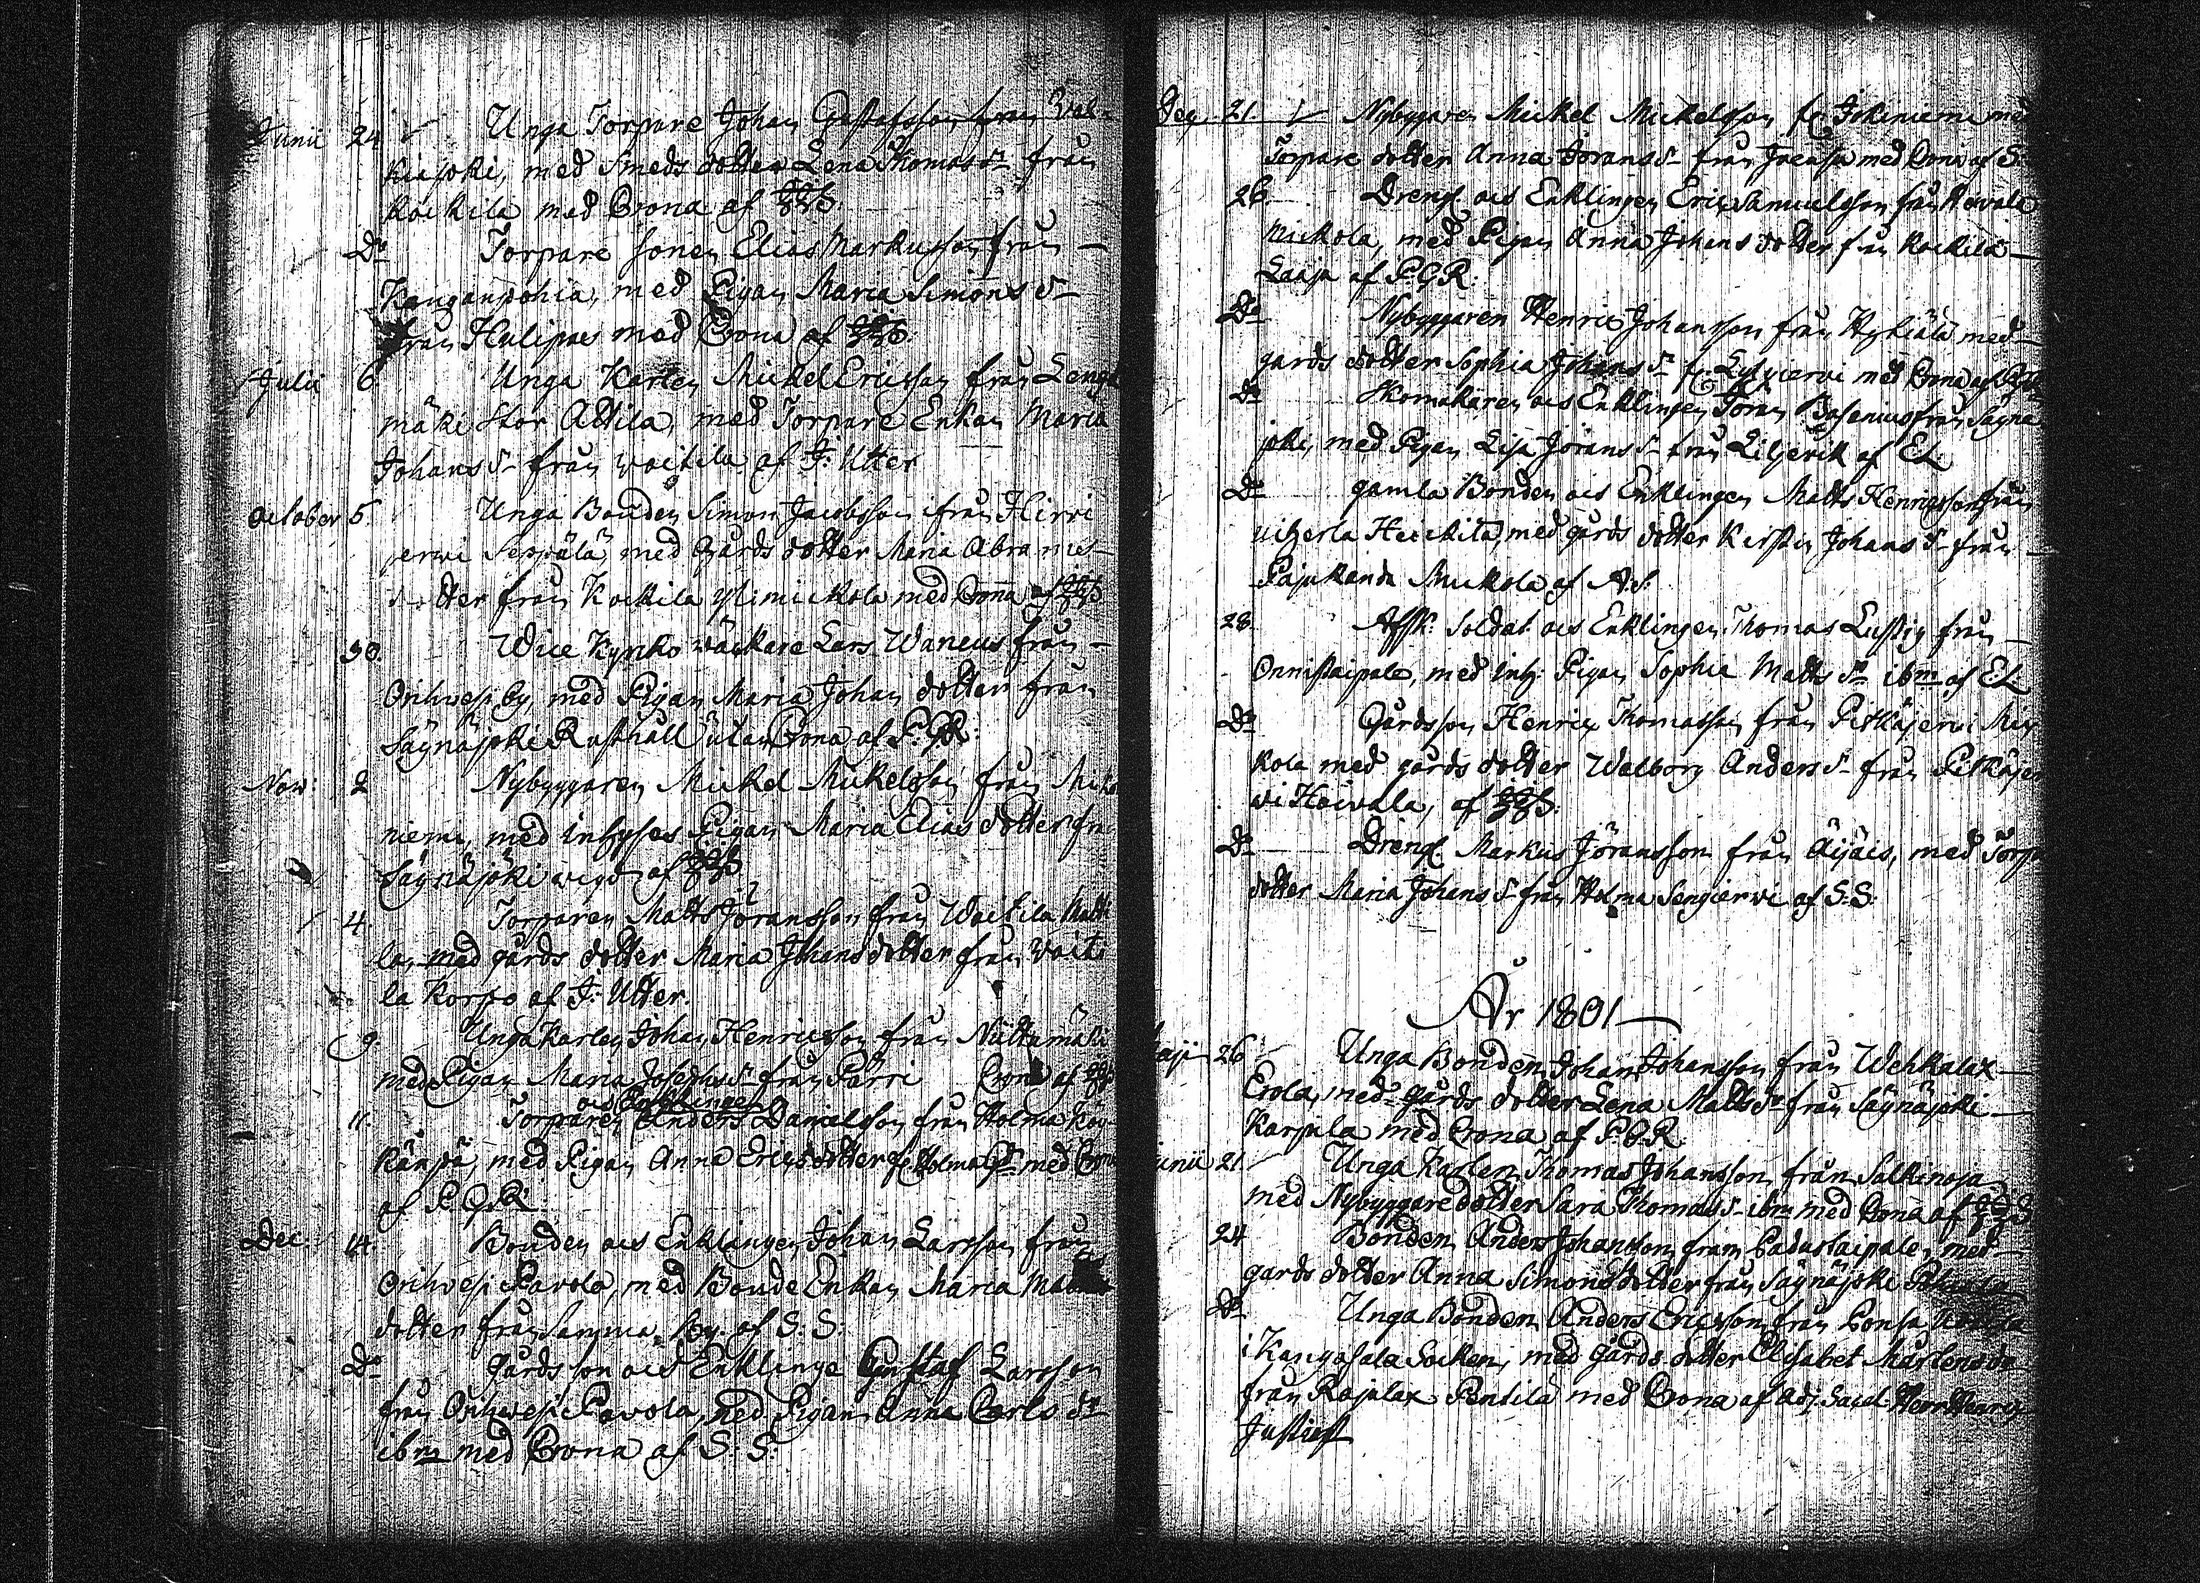 Junii 24. Unga Torpare Johan Gustafsson från Val-
kiajoki, med Smeds dotter Lena Thomas dr från
Kockila med Crona af
Do Torpare sonen Elias Markusson från
Kanganpohia, med Pigan Maria Simons d-
från Hulipas med Crona af
Julii 6 Unga Karlen Mickel Ericsson från Leng
mäki Stor Attila, med Torpare Enkan Maria
Johans d- från Woitila af J: Utter
October 5. Unga Bonden Simon Jacobsson från Hirvi
jerwi Seppälä, med Gårds dotter Maria Abrams
dotter från Kockila Ylimickola med Crona af
30. Wice Kyrko wäckare Lars Waneus från
Orihwesi by, med Pigan Maria Johan dotter från
Säynäjoki Rusthåll utan Crona af P.G.R:
Now: 2 Nybyggaren Mickel Mickelsson från
niemi, med Inhyses Pigan Maria Elias dotter frn
Säynäjoki wigd af
4. Torparen Matts Jöransson från Woitila Matti
la, med gårds dotter Maria Johans dotter från Woiti
la Korpo af J: Utter.
9. Unga Karlen Johan Henricsson från Niittumäki
med Pigan Maria Josephs d- från Pärri Crona af
ocs Enklingen
11. Torparen Anders Danielsson från Holma Kou
känpä, med Pigan Anna Erics dotter fr Holma med Crona
af P.G.R:
Dec: 14. Bonden ocs Enklingen Johan Larsson från
Orihwesi Pavola, med Bonde Enkan Maria
dotter från Samma By. af S: S:
Do Gårds son ocs Enklinge Gustaf Larsson
från Orihwesi Pavola, med Pigan Anna Carls dr
ibm med Crona af S: S:
Dec 21. Nybyggaren Mickel Mickelsson fr. Jokiniemi med
Torpare dotter Anna Jörans d- från med Crona af S
26. Dreng. ocs Enklingen Eric Samuelsson från Koivola
Mickola, med Pigan Anna Johans dotter frn Kockila
Laaja af P.G.R:
Do Nybyggaren Henric Johansson från Hykiälä med
gårds dotter Sophia Johans dr fr. med Crona af
Do Skomakaren ocs Enklingen Jöran Basenius från Säynä
joki, med Pigan Lisa Jörans d- från Liljerik af EL
Do gamla Bonden ocs Enklingen Matts Henricsson från
Uiherla Heickilä, med gårds dotter Kirstin Johans d- från
Pajukanda Mickola af A.S.
28. Affsk: Soldat ocs Enklingen Thomas Lustig från
Onnistaipale, med Inh: Pigan Sophia Matts dr ibm af EL
Do Gårdsson Henric Thomasson från Pitkäjerwi Mic
kola med gårds dotter Walborg Anders d- från Pitkäjer
wi Hoiwala, af
Do Dreng. Markus Jöransson från Äijäis, med Torp
dotter Maria Johans d- från Holma Lengierwi af S:S:
År 1801
Maji 26 Unga Bonden Johan Johansson från Wehkalax
Erola, med gårds dotter Lena Matts dr från Säynäjoki
Karjula med Crona af P.G.R
Junii 21 Unga Karlen Thomas Johansson från Salkinoja
med Nybyggare dotter Sara Thomas d- ibm med Crona af
24 Bonden Anders Johansson från Padustaipale, med
gårds dotter Anna Simons dotter från Säynäjoki
Do Unga Bonden Anders Ericsson från Ponsa
i Kangasala Socken, med gårds dotter Elisabet Mårtens dr
från Rajalax Pentila med Crona af Adj. Sacel: Herr Henric
Justiest